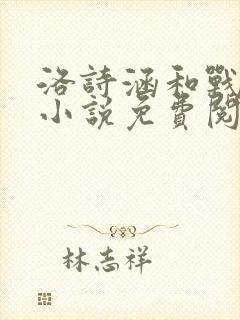 洛詩涵和戰
小說免費閱
林志祥